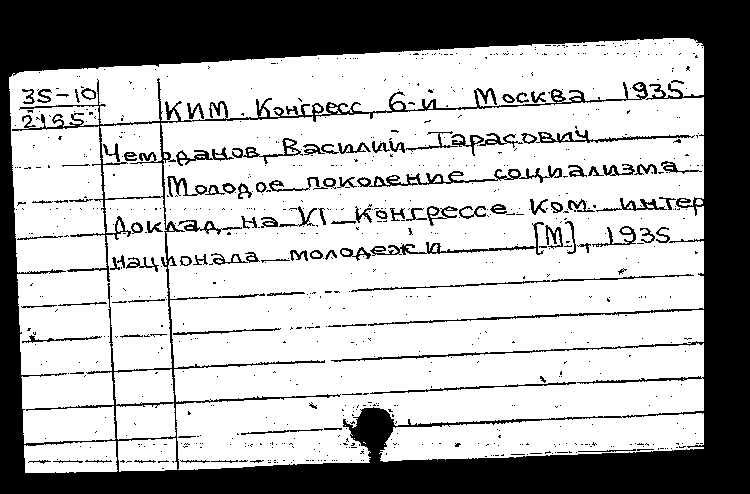 35-10
2195
КИМ. Конгресс, 6-й Москва. 1935.
Чемоданов, Василий Тарасович
Молодое поколение социализма
Доклад на VI Конгрессе Ком. интер
национала молодежи. [М], 1935